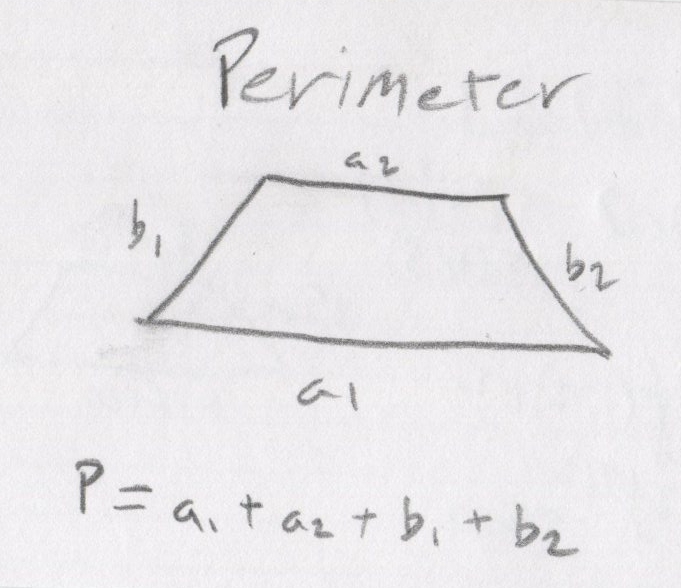 Perimeter
a2
b1
b2
a1
P = a1 + a2 + b1 + b2